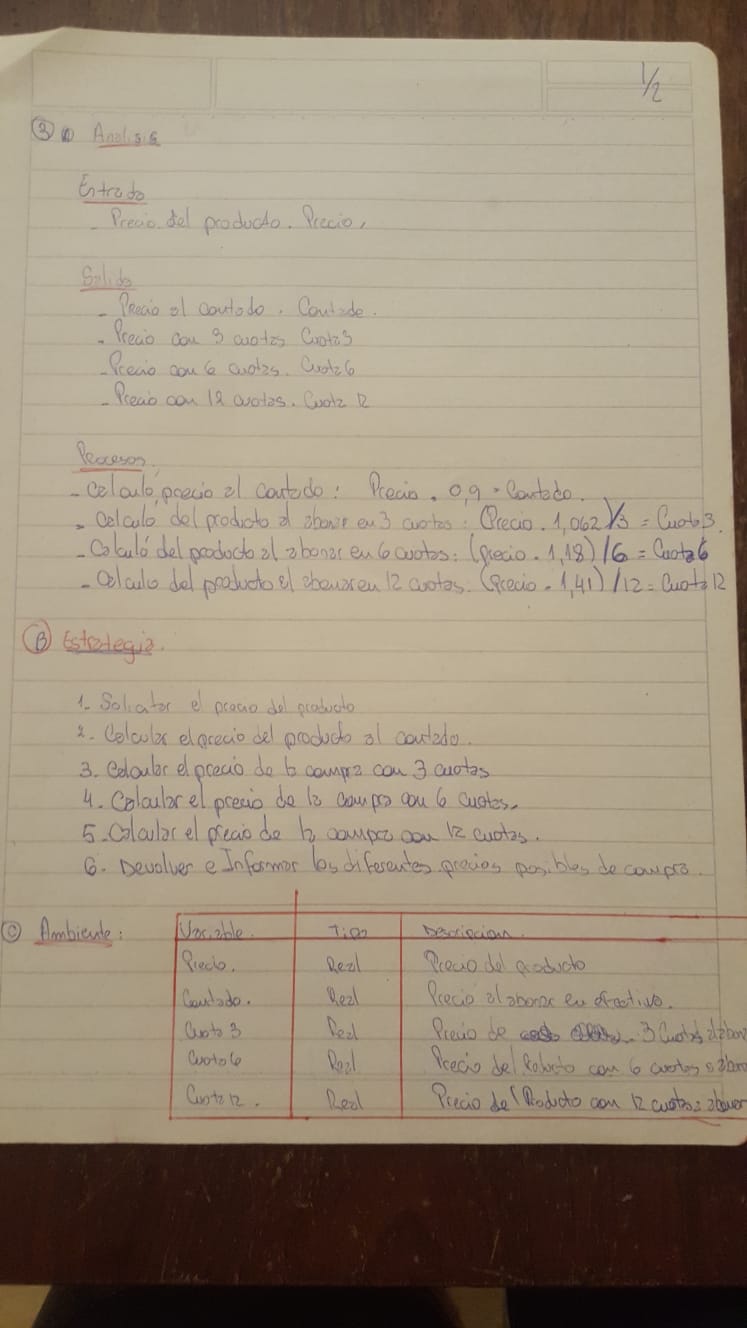 1/2
③ A Analisis
Entrada
- Precio del producto. Precio,
Salida
- Precio al contado. Contado.
- Precio con 3 cuotas Cuota3
- Precio con 6 cuotas. Cuota 6
- Precio con 12 cuotas. Cuota 12
Procesos,
- Calculo precio al contado: Precio . 0,9 = Contado.
- Calculo del producto al abonar en 3 cuotas: (Precio . 1,062)/3 = Cuota 3.
- Calculó del producto al abonar en 6 cuotas: (precio . 1,18) /6 = Cuota 6
- Calculo del producto al abonar en 12 cuotas. (Precio . 1,41) /12 = Cuota 12
Ⓑ Estrategia.
1- Solicitar el precio del producto
2- Calcular el precio del producto al contado.
3. Calcular el precio de la compra con 3 cuotas
4. Calcular el precio de la compra con 6 cuotas.
5. Calcular el precio de la compra con 12 cuotas.
6. Devolver e Informar los diferentes precios posibles de compra.
Ⓒ Ambiente: Variable. Tipo Descripcion.
Precio. Real Precio del producto
Contado. Real Precio al abonar en efectivo.
Cuota 3 Real Precio de 3 Cuotas
Cuota 6 Real Precio del Producto con 6 cuotas
Cuota 12. Real Precio del Producto con 12 cuotas